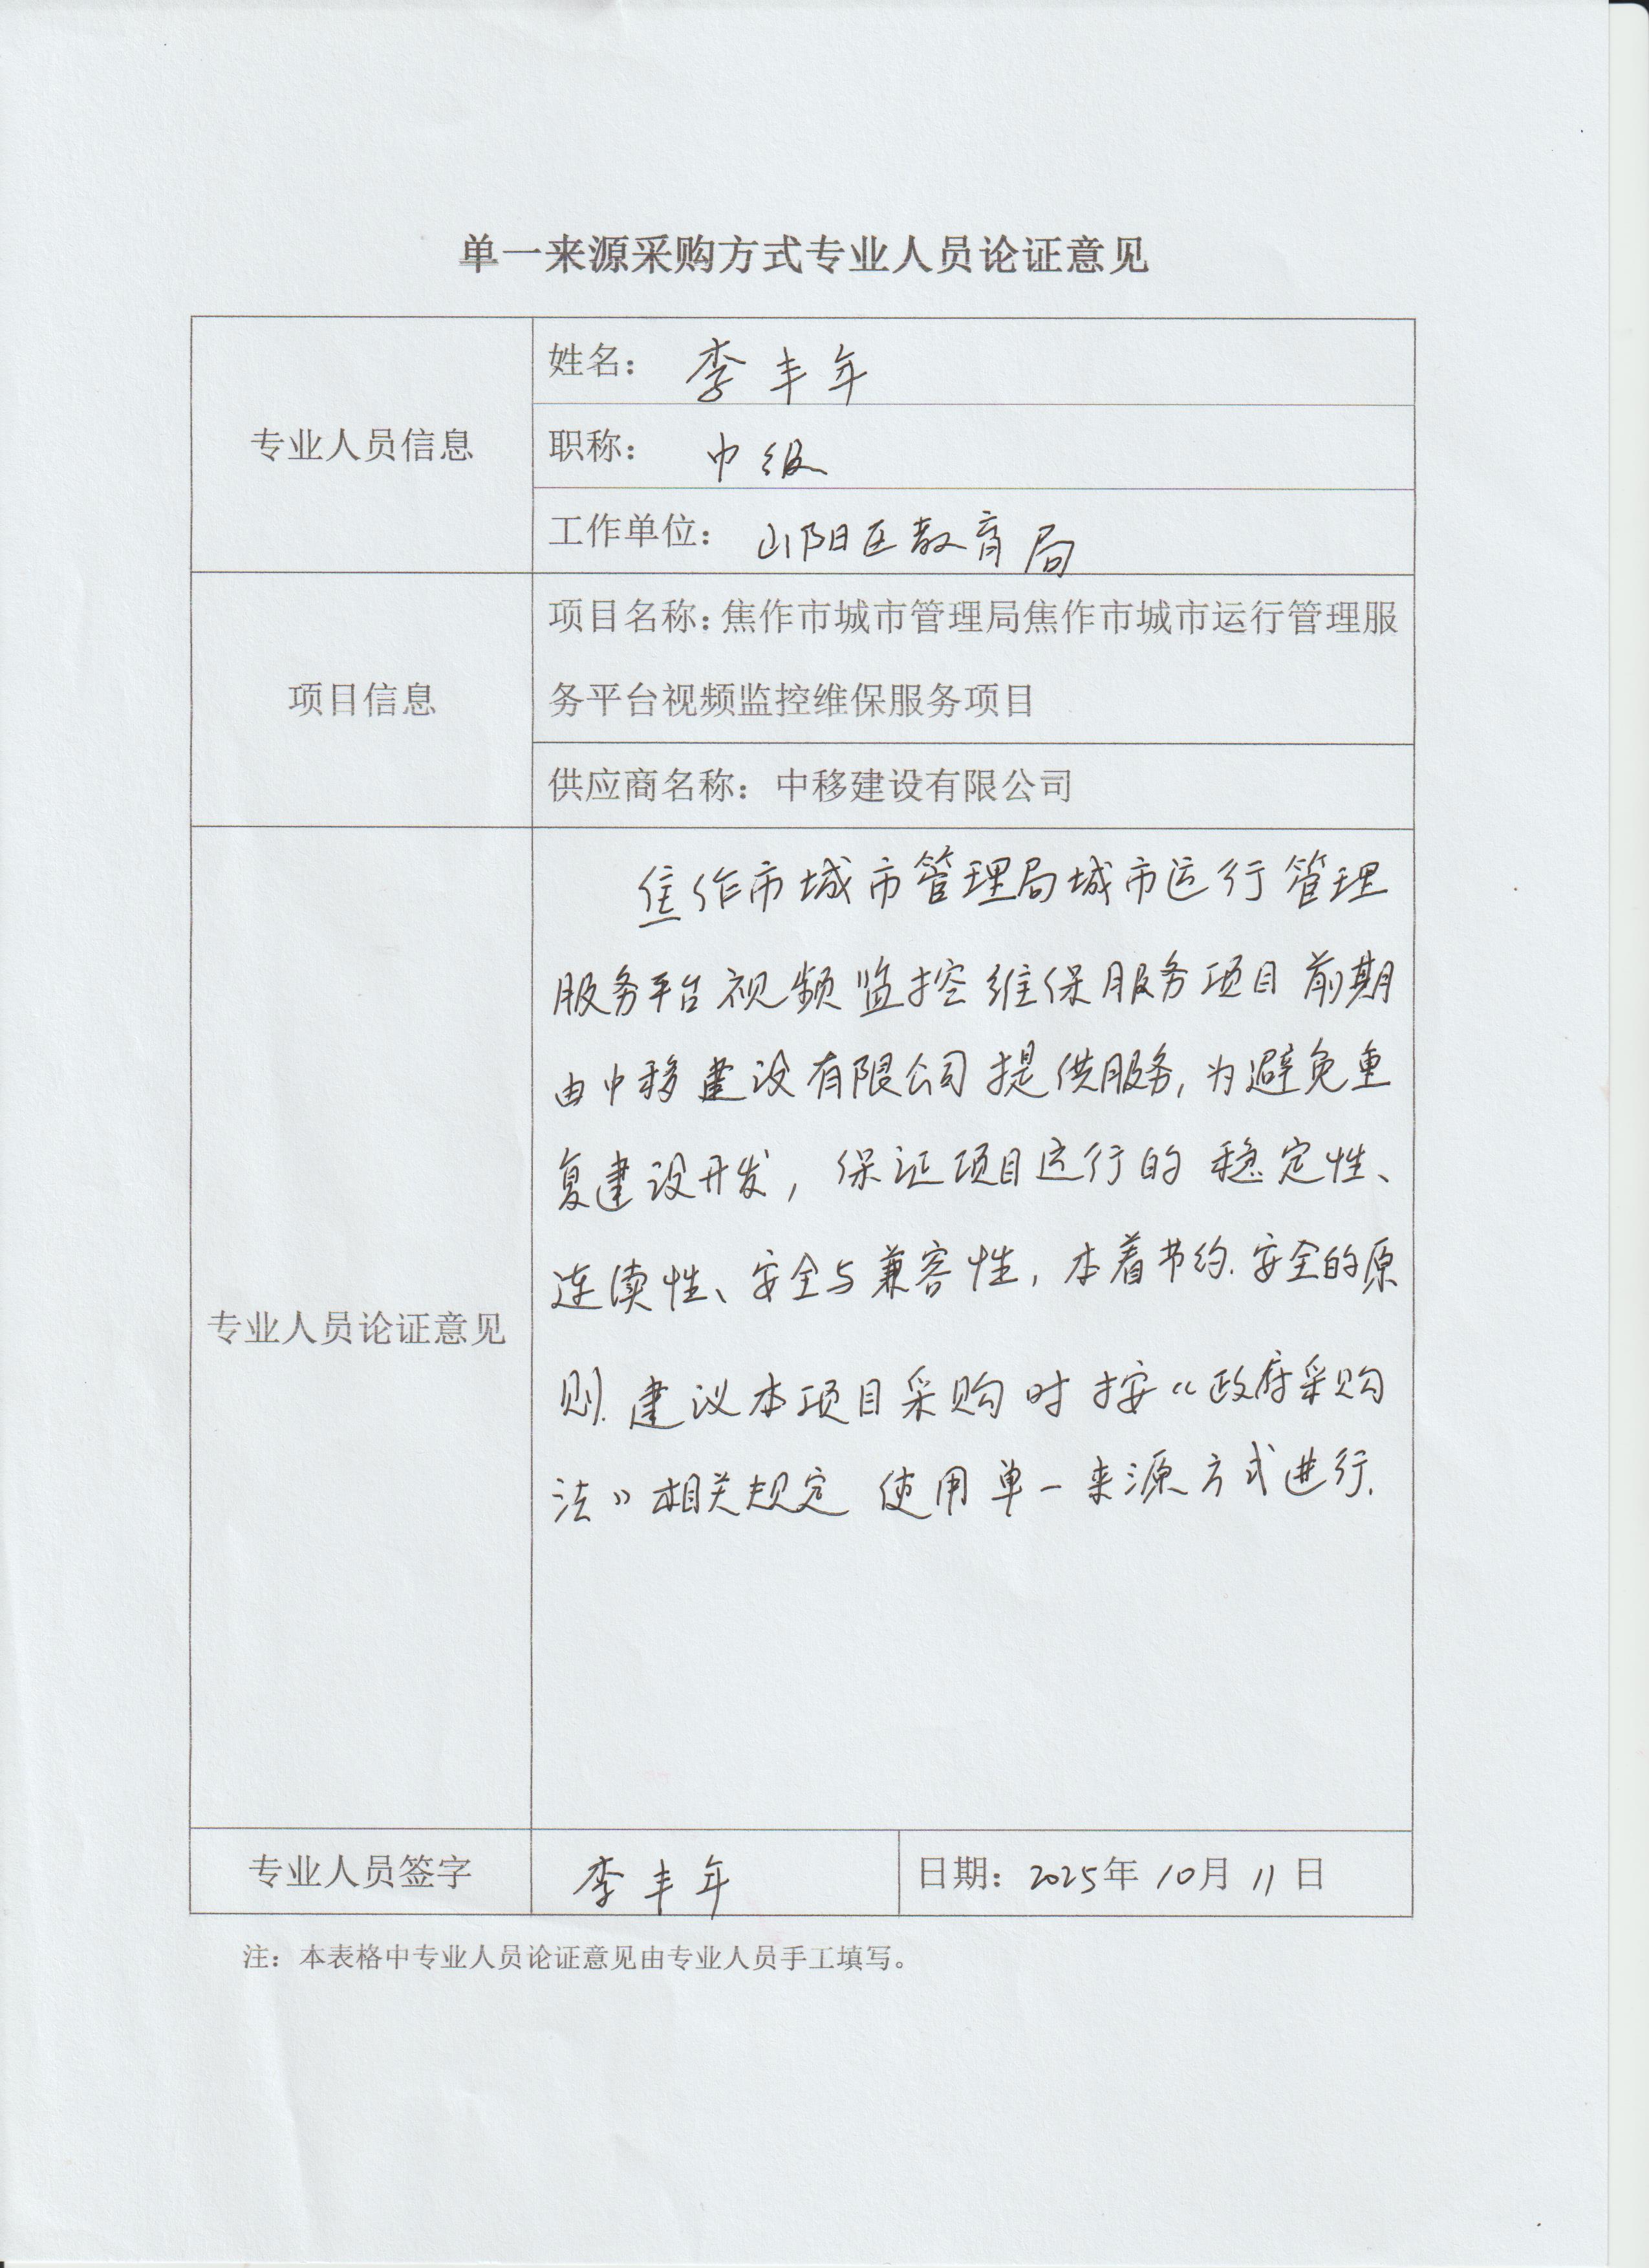 单一来源采购方式专业人员论证意见
专业人员信息
姓名： 李丰年
职称： 中级
工作单位： 山阳区教育局
项目信息
项目名称：焦作市城市管理局焦作市城市运行管理服
务平台视频监控维保服务项目
供应商名称：中移建设有限公司
专业人员论证意见
焦作市城市管理局城市运行管理
服务平台视频监控维保服务项目前期
由中移建设有限公司提供服务，为避免重
复建设开发，保证项目运行的稳定性、
连续性、安全与兼容性，本着节约.安全的原
则.建议本项目采购时按《政府采购
法》相关规定 使用单一来源方式进行.
专业人员签字
李丰年
日期：2025年10月11日
注：本表格中专业人员论证意见由专业人员手工填写。